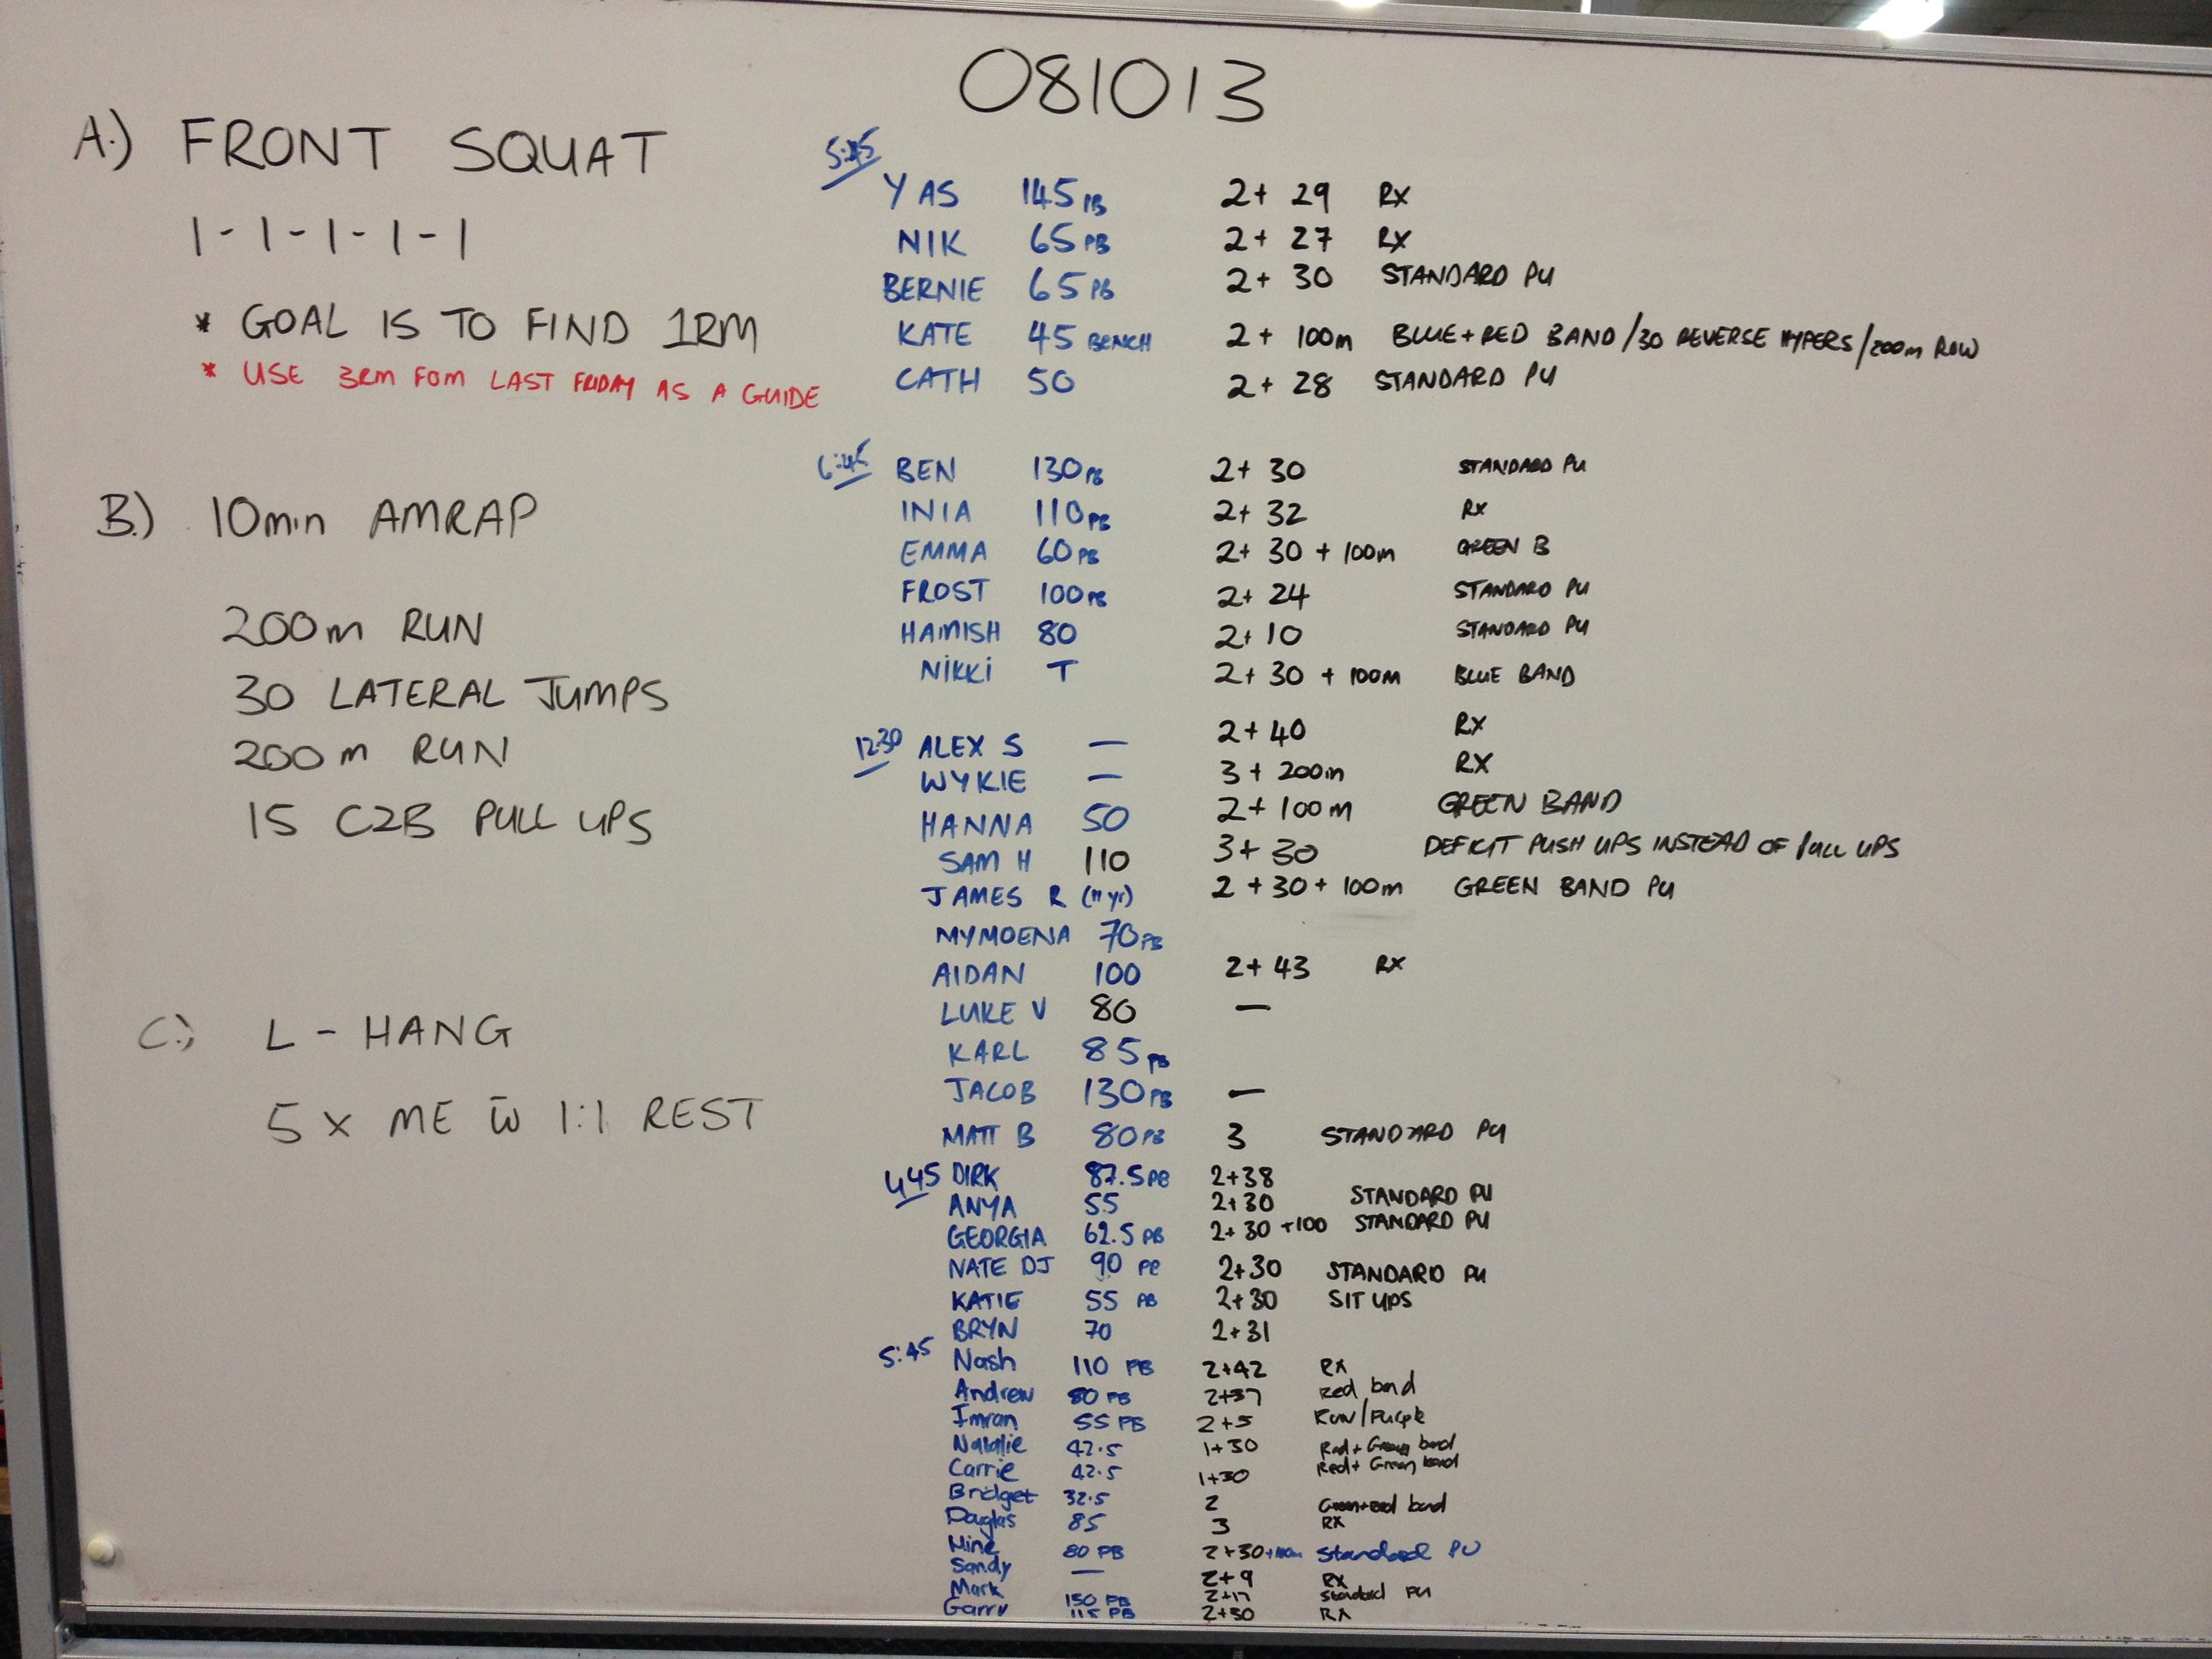 081013
A.) FRONT SQUAT
1-1-1-1-1
* GOAL IS TO FIND 1RM
* USE 3RM FOM LAST FRIDAY AS A GUIDE
B.) 10min AMRAP
200m RUN
30 LATERAL JUMPS
200m RUN
15 C2B PULL UPS
C.) L - HANG
5 x ME w̄ 1:1 REST
5:45
YAS 145 PB 2+ 29 RX
NIK 65 PB 2+ 27 RX
BERNIE 65 PB 2+ 30 STANDARD PU
KATE 45 BENCH 2+ 100m BLUE+RED BAND/30 REVERSE HYPERS/200m ROW
CATH 50 2+ 28 STANDARD PU
6:45 BEN 130 PB 2+ 30 STANDARD PU
INIA 110 PB 2+ 32 RX
EMMA 60 PB 2+ 30 + 100m GREEN B
FROST 100 PB 2+ 24 STANDARD PU
HAMISH 80 2+ 10 STANDARD PU
NIKKI T 2+ 30 + 100m BLUE BAND
12:30 ALEX S — 2+ 40 RX
WYKIE — 3+ 200m RX
HANNA 50 2+ 100m GREEN BAND
SAM H 110 3+ 30 DEFICIT PUSH UPS INSTEAD OF PULL UPS
JAMES R (11 yr) 2+30+ 100m GREEN BAND PU
MYMOENA 70 PB
AIDAN 100 2+ 43 RX
LUKE V 80 —
KARL 85 PB
JACOB 130 PB —
MATT B 80 PB 3 STANDARD PU
445 DIRK 87.5 PB 2+38
ANYA 55 2+30 STANDARD PU
GEORGIA 62.5 PB 2+ 30 +100 STANDARD PU
NATE DJ 90 PB 2+30 STANDARD PU
KATIE 55 PB 2+30 SIT UPS
BRYN 70 2+31
5:45 Nash 110 PB 2+42 RX
Andrew 80 PB 2+37 Red band
Imran 55 PB 2+5 Run/Purple
Natalie 42.5 1+30 Red + Green band
Carrie 42.5 1+30 Red + Green band
Bridget 32.5 2 Green+Red band
Douglas 85 3 RX
80 PB 2+30+100m Standard PU
Sandy — 2+9 RX
Mark 150 PB 2+17 Standard PU
Garry 115 PB 2+30 RX